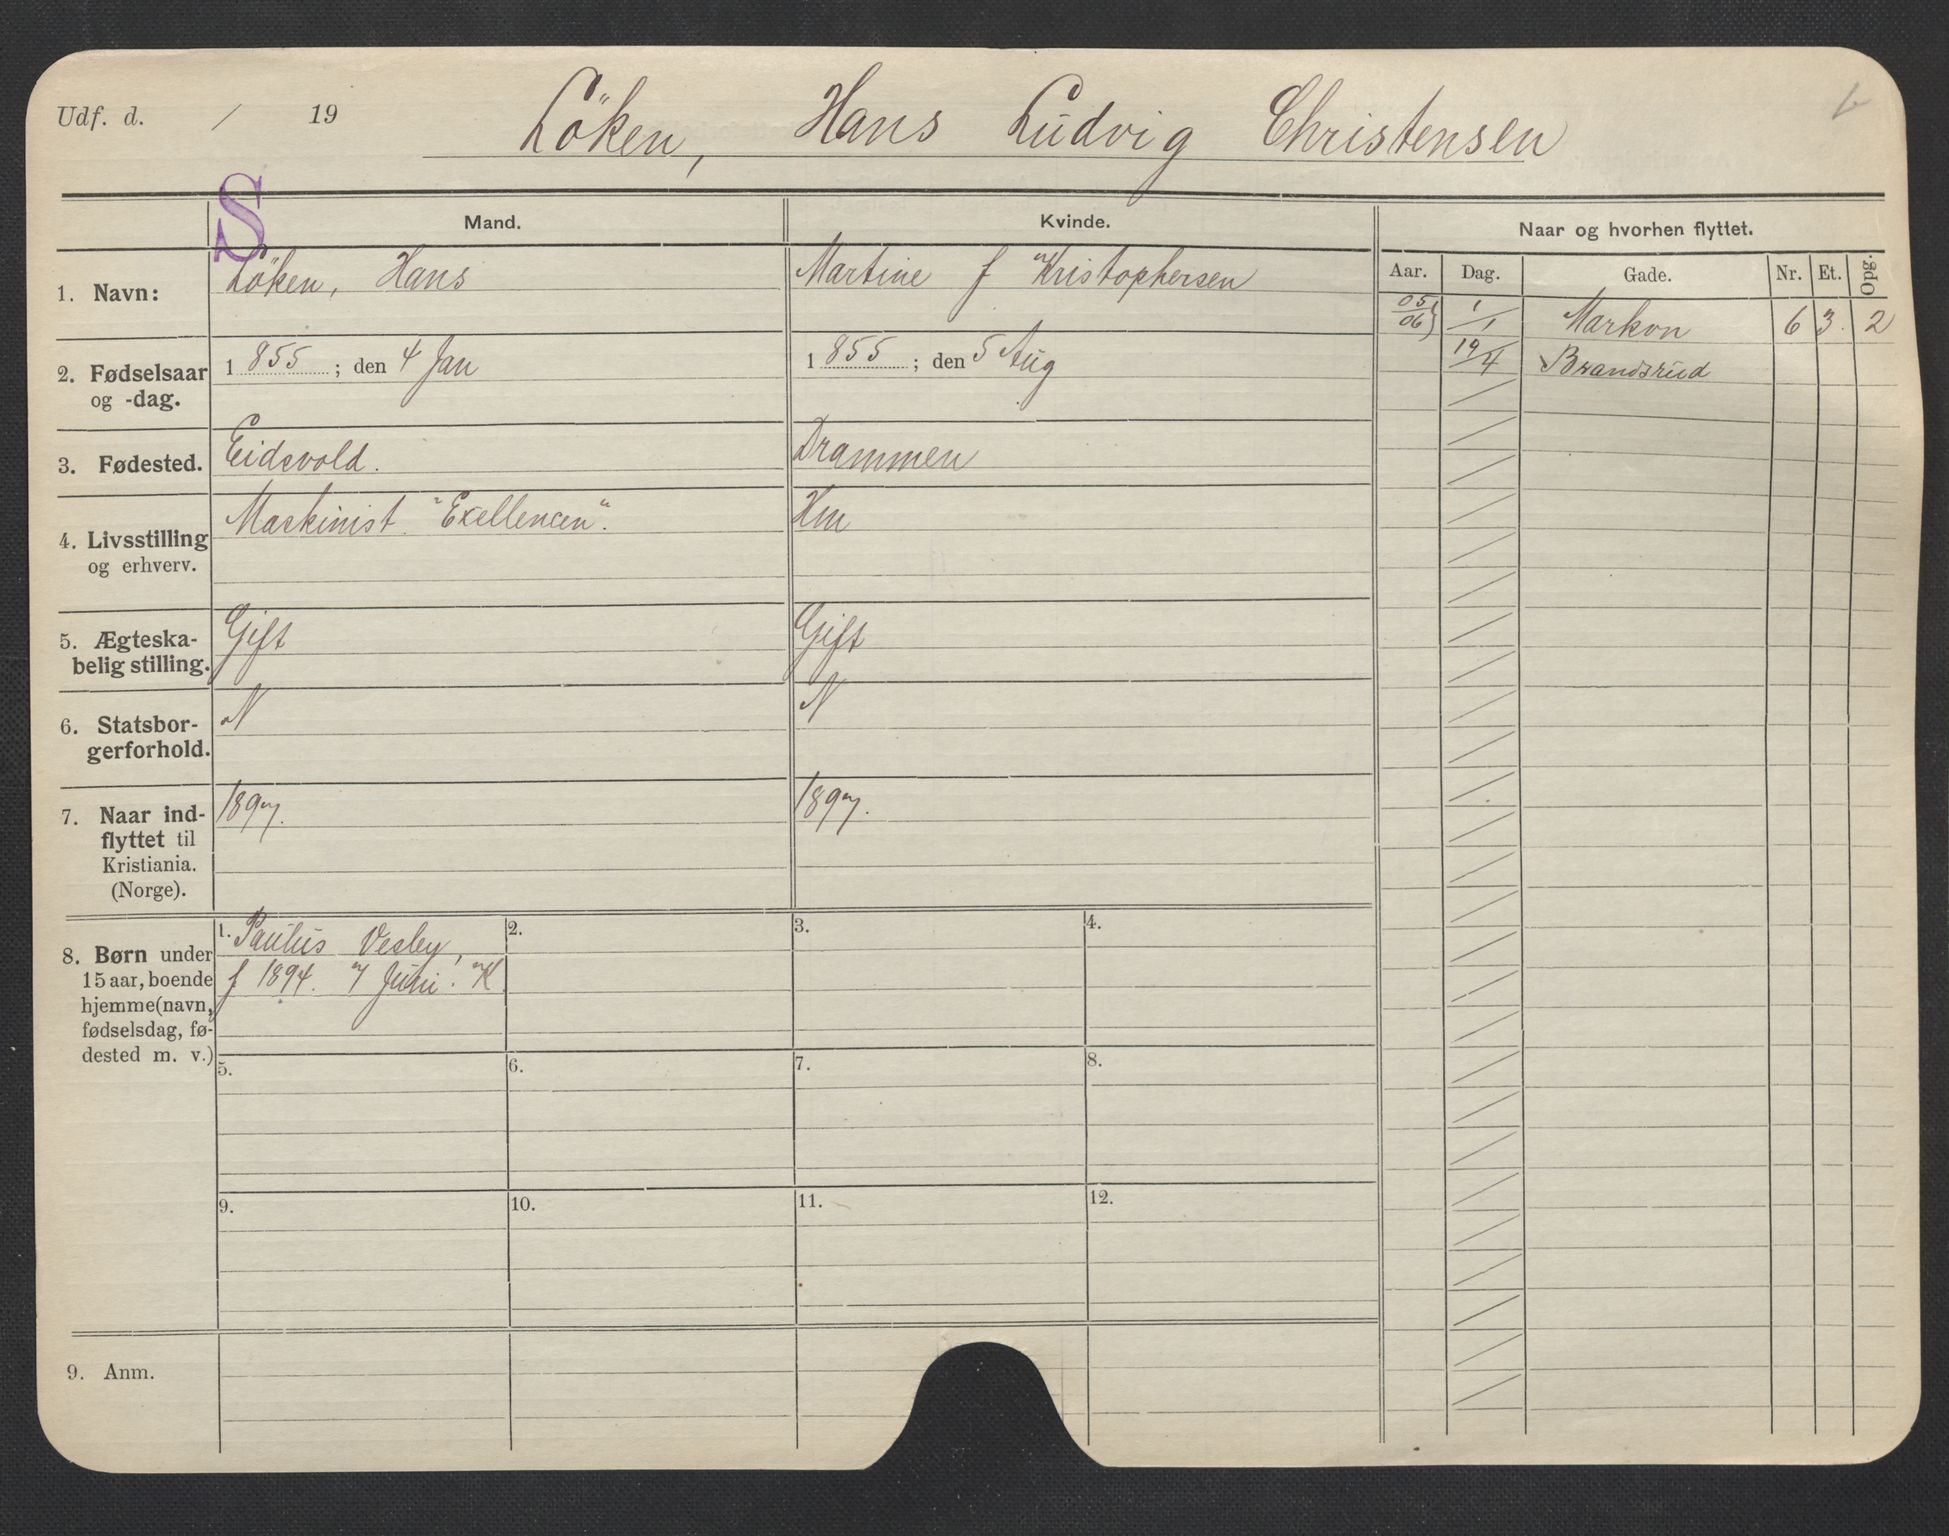 Udf. d. / 19
Löken, Hans Ludvig Christensen
S
Mand.
Kvinde.
Naar og hvorhen flyttet.
Aar. Dag. Gade. Nr. Et. Opg.
1. Navn:
Löken, Hans
Martine f Kristophersen
05/06 1/1 Markvn 6 3. 2
19/4 Brandsrud
2. Fødselsaar
og -dag.
1 855 ; den 4 Jan
1 855 ; den 5 Aug
3. Fødested.
Eidsvold.
Drammen
4. Livsstilling
og erhverv.
Maskinist "Exellencen".
Hm
5. Ægteska-
belig stilling.
Gift
Gift
6. Statsbor-
gerforhold.
N
N
7. Naar ind-
flyttet til
Kristiania.
(Norge).
1897.
1897.
8. Børn under
15 aar, boende
hjemme (navn,
fødselsdag, fø-
dested m. v.)
1. Paulus Vesley,
f 1894. 7 Juni. K.
2.
3.
4.
5.
6.
7.
8.
9.
10.
11.
12.
9. Anm.